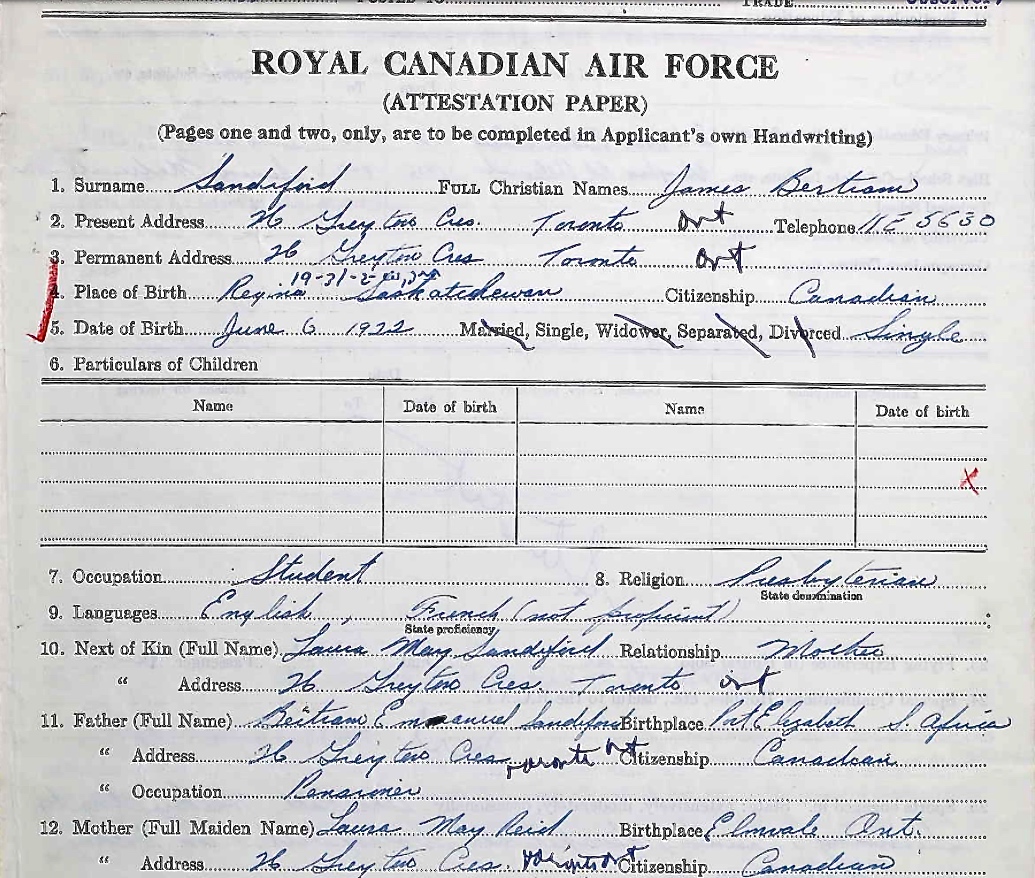 TRADE
ROYAL CANADIAN AIR FORCE
(ATTESTATION PAPER)
(Pages one and two, only, are to be completed in Applicant's own Handwriting)
1. Surname Sandiford FULL Christian Names James Bertram
2. Present Address 26 Greyton Cres. Toronto Ont Telephone 5630
3. Permanent Address 26 Greyton Cres Toronto Ont
4. Place of Birth Regina Saskatchewan Citizenship Canadian
5. Date of Birth June 6 1922 Married, Single, Widower, Separated, Divorced Single
6. Particulars of Children
Name Date of birth Name Date of birth
7. Occupation Student 8. Religion Presbyterian
State denomination
9. Languages English, French (not proficient)
State proficiency
10. Next of Kin (Full Name) Laura May Sandiford Relationship Mother
" Address 26 Greyton Cres. Toronto Ont
11. Father (Full Name) Bertram Emmanuel Sandiford Birthplace Port Elizabeth S. Africa
" Address 26 Greyton Cres Toronto Ont Citizenship Canadian
" Occupation Pensioner
12. Mother (Full Maiden Name) Laura May Reid Birthplace Elmvale Ont.
" Address 26 Greyton Cres. Toronto Ont Citizenship Canadian